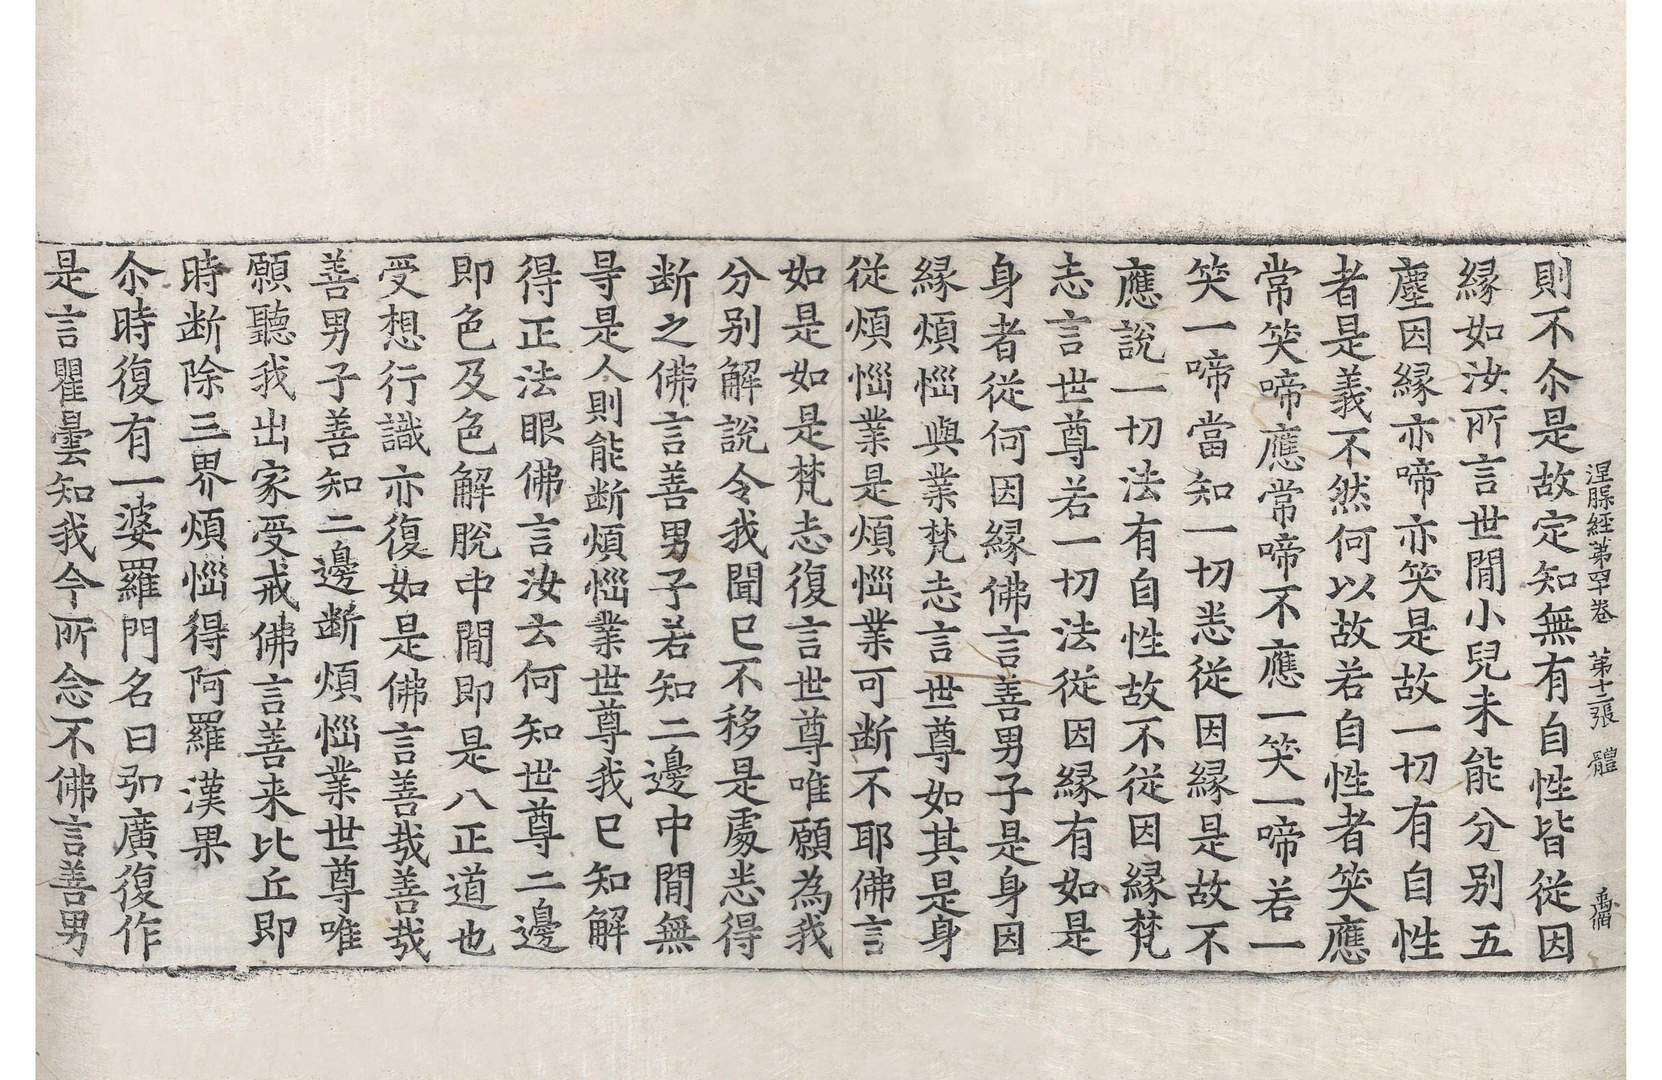 涅槃經第四十卷 第十二張 體
則不尒是故定知無有自性皆従因
縁如汝所言世間小兒未能分别五
塵因縁亦啼亦笑是故一切有自性
者是義不然何以故若自性者笑應
常笑啼應常啼不應一笑一啼若一
笑一啼當知一切悉従因縁是故不
應説一切法有自性故不従因縁梵
志言世尊若一切法従因縁有如是
身者従何因縁佛言善男子是身因
縁煩惱與業梵志言世尊如其是身
従煩惱業是煩惱業可断不耶佛言
如是如是梵志復言世尊唯願為我
分别解説令我聞已不移是處悉得
断之佛言善男子若知二邊中間無
㝵是人則能断煩惱業世尊我已知解
得正法眼佛言汝云何知世尊二邊
即色及色解脱中間即是八正道也
受想行識亦復如是佛言善哉善哉
善男子善知二邊断煩惱業世尊唯
願聽我出家受戒佛言善来比丘即
時断除三界煩惱得阿羅漢果
尒時復有一婆羅門名曰弘廣復作
是言瞿曇知我今所念不佛言善男